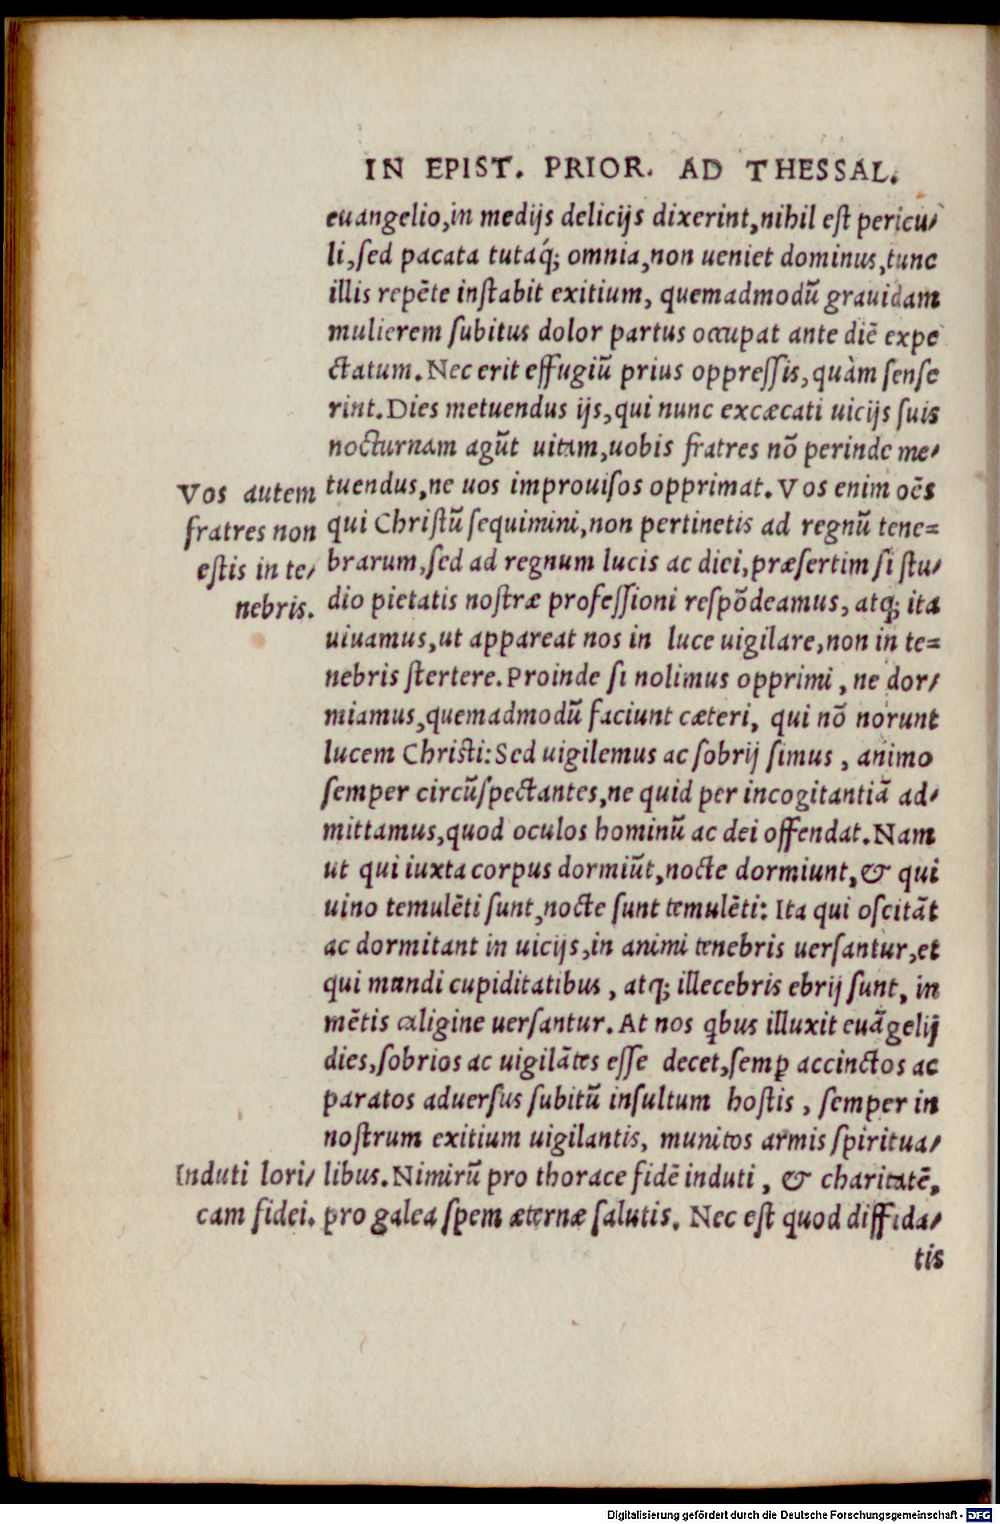 IN EPIST. PRIOR. AD THESSAL.
euangelio,in medijs delicijs dixerint,nihil eſt pericu/
li,ſed pacata tutaq́; omnia,non ueniet dominus,tunc
illis repẽte inſtabit exitium, quemadmodũ grauidam
mulierem ſubitus dolor partus occupat ante diẽ expe
ctatum. Nec erit effugiũ prius oppreſſis,quàm ſenſe
rint. Dies metuendus ijs,qui nunc excæcati uicijs ſuis
nocturnam agũt uitam,uobis fratres nõ perinde me/
tuendus,ne uos improuiſos opprimat. Vos enim oẽs
qui Chriſtũ ſequimini,non pertinetis ad regnũ tene=
brarum,ſed ad regnum lucis ac diei,præſertim ſi ſtu/
dio pietatis noſtræ profeſſioni reſpõdeamus, atq; ita
uiuamus,ut appareat nos in luce uigilare,non in te=
nebris ſtertere. Proinde ſi nolimus opprimi, ne dor/
miamus,quemadmodũ faciunt cæteri, qui nõ norunt
lucem Chriſti: Sed uigilemus ac ſobrij ſimus, animo
ſemper circũſpectantes,ne quid per incogitantiã ad/
mittamus,quod oculos hominũ ac dei offendat. Nam
ut qui iuxta corpus dormiũt,nocte dormiunt,& qui
uino temulẽti ſunt,nocte ſunt temulẽti: Ita qui oſcitãt
ac dormitant in uicijs,in animi tenebris uerſantur,et
qui mundi cupiditatibus, atq; illecebris ebrij ſunt, in
mẽtis caligine uerſantur. At nos q̃bus illuxit euãgelij
dies,ſobrios ac uigilãtes eſſe decet,ſemꝑ accinctos ac
paratos aduerſus ſubitũ inſultum hoſtis, ſemper in
noſtrum exitium uigilantis, munitos armis ſpiritua/
libus. Nimirũ pro thorace fidẽ induti, & charitatẽ,
pro galea ſpem æternæ ſalutis. Nec eſt quod diffida/
tis
Vos autem
fratres non
eſtis in te/
nebris.
Induti lori/
cam fidei.
Digitalisierung gefördert durch die Deutsche Forschungsgemeinschaft - DFG